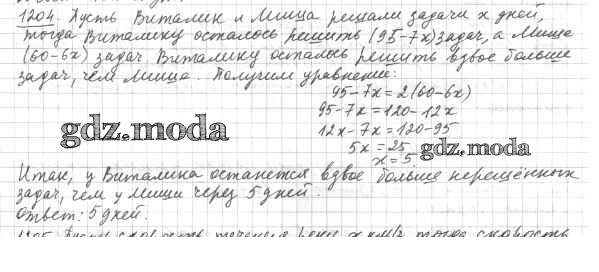 1204. Пусть Виталик и Миша решали задачи x дней,
тогда Виталику осталось решить (95-7x) задач, а Мише
(60-6x) задач. Виталику осталось решить вдвое больше
задач, чем Мише. Получим уравнение:
95-7x=2(60-6x)
95-7x=120-12x
12x-7x=120-95
5x=25
x=5
gdz.moda
gdz.moda
Итак, у Виталика останется вдвое больше нерешённых
задач, чем у Миши через 5 дней.
Ответ: 5 дней.
1205. Пусть скорость течения реки x км/ч тогда скорость